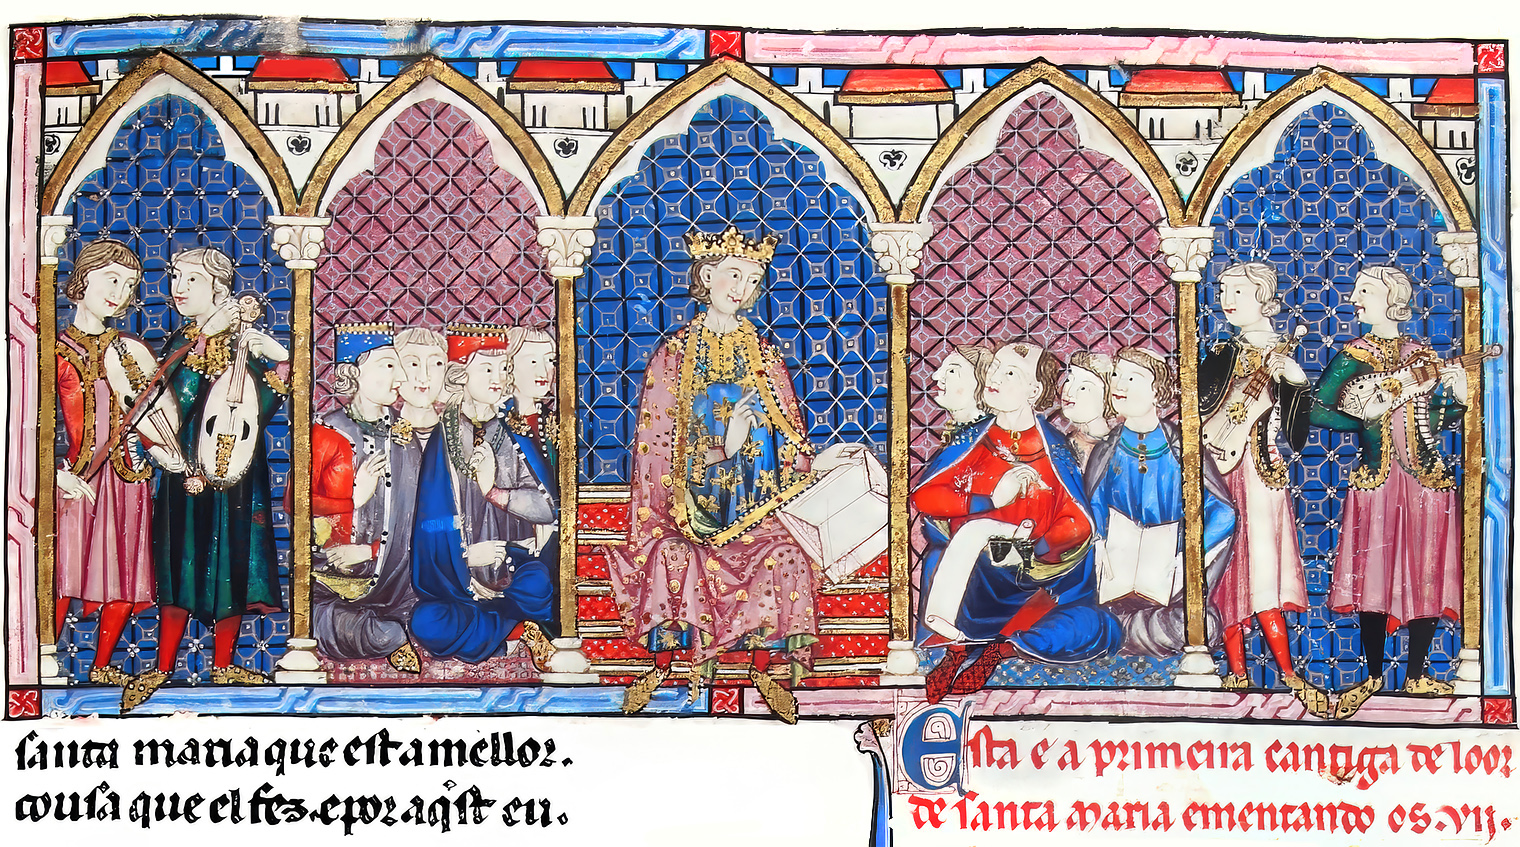 santa maria que est a mellor.
cousa que el fez. e por aq̄st eu.
Esta e a primeira cantiga de loor
de santa maria ementando os .vij.